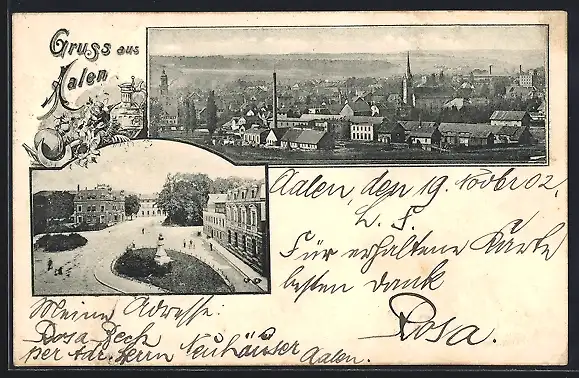 Gruss aus
Aalen
Aalen, den 19. Novbr 02.
L. F.
Für erhaltene Karte
besten Dank
Rosa.
Meine Adresse:
Rosa Beck
per Adr. Herrn Neuhäuser Aalen.